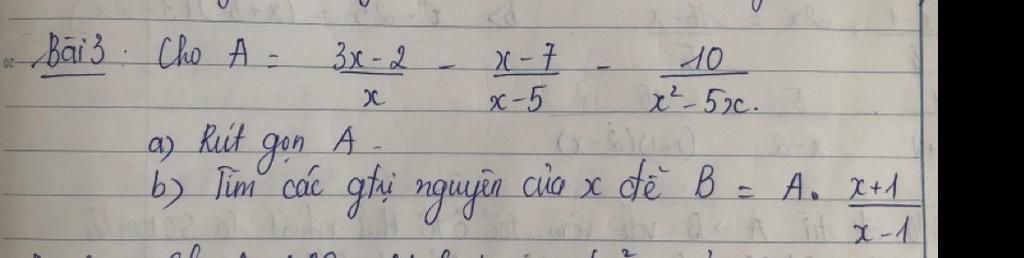 Bài 3. Cho A = \frac{3x-2}{x} - \frac{x-7}{x-5} - \frac{10}{x²-5x}.
a) Rút gọn A.
b) Tìm các gtrị nguyên của x để B = A. \frac{x+1}{x-1}